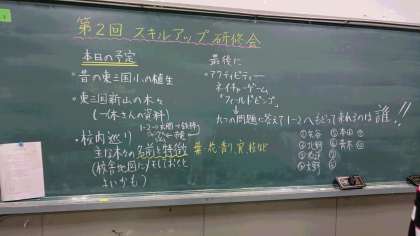 第2回 スキルアップ研修会
本日の予定
・昔の東三国小の植生
・東三国新山の木々
(一本さんの資料)
・校内巡り
1-2→玄関→鉄棒
主な木々の名前と特徴 葉・花・香り,実,枝など
(校舎地図に記しておくと
よいかも)
最後に
・アクティビティー
ネイチャーゲーム
"フィールドビンゴ"
九つの問題に答えて1-2へもどって来れるのは誰!!
①
②北野
③
④
⑤本田
⑥青木
⑦
⑧